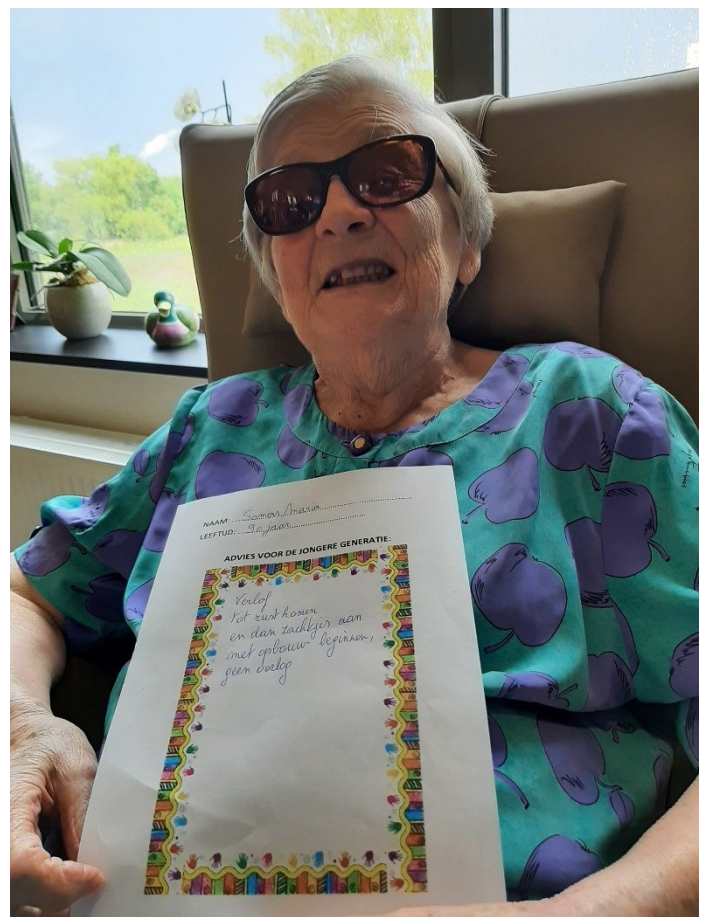 NAAM: Somers Maria
LEEFTIJD: 90 jaar
ADVIES VOOR DE JONGERE GENERATIE:
Verlof
tot rust komen
en dan zachtjes aan
met opbouw beginnen,
geen oorlog